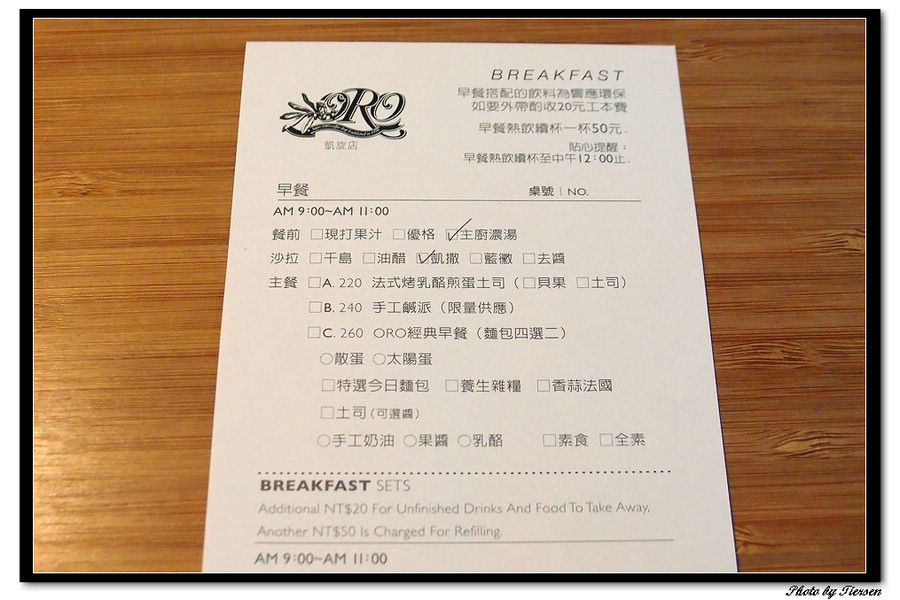 BREAKFAST
早餐搭配的飲料為響應環保
如要外帶酌收20元工本費
早餐熱飲續杯一杯50元.
貼心提醒：
早餐熱飲續杯至中午12:00止.
ORO
凱旋店
早餐 桌號 | NO.
AM 9:00~AM 11:00
餐前 □現打果汁 □優格 ☑主廚濃湯
沙拉 □千島 □油醋 ☑凱撒 □藍黴 □去醬
主餐 □A. 220 法式烤乳酪煎蛋土司（□貝果 □土司）
□B. 240 手工鹹派（限量供應）
□C. 260 ORO經典早餐（麵包四選二）
○散蛋 ○太陽蛋
□特選今日麵包 □養生雜糧 □香蒜法國
□土司(可選醬)
○手工奶油 ○果醬 ○乳酪 □素食 □全素
BREAKFAST SETS
Additional NT$20 For Unfinished Drinks And Food To Take Away.
Another NT$50 Is Charged For Refilling.
AM 9:00~AM 11:00
Photo by Tiersen